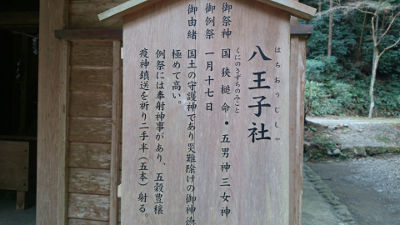 八王子社
はちおうじしゃ
御祭神 国狭槌命・五男神三女神
くにのさずちのみこと
御例祭 一月十七日
御由緒 国土の守護神であり災難除けの御神徳
極めて高い。
例祭には奉射神事があり、五穀豊穣
疫神鎮送を祈り二手半(五本)射る。